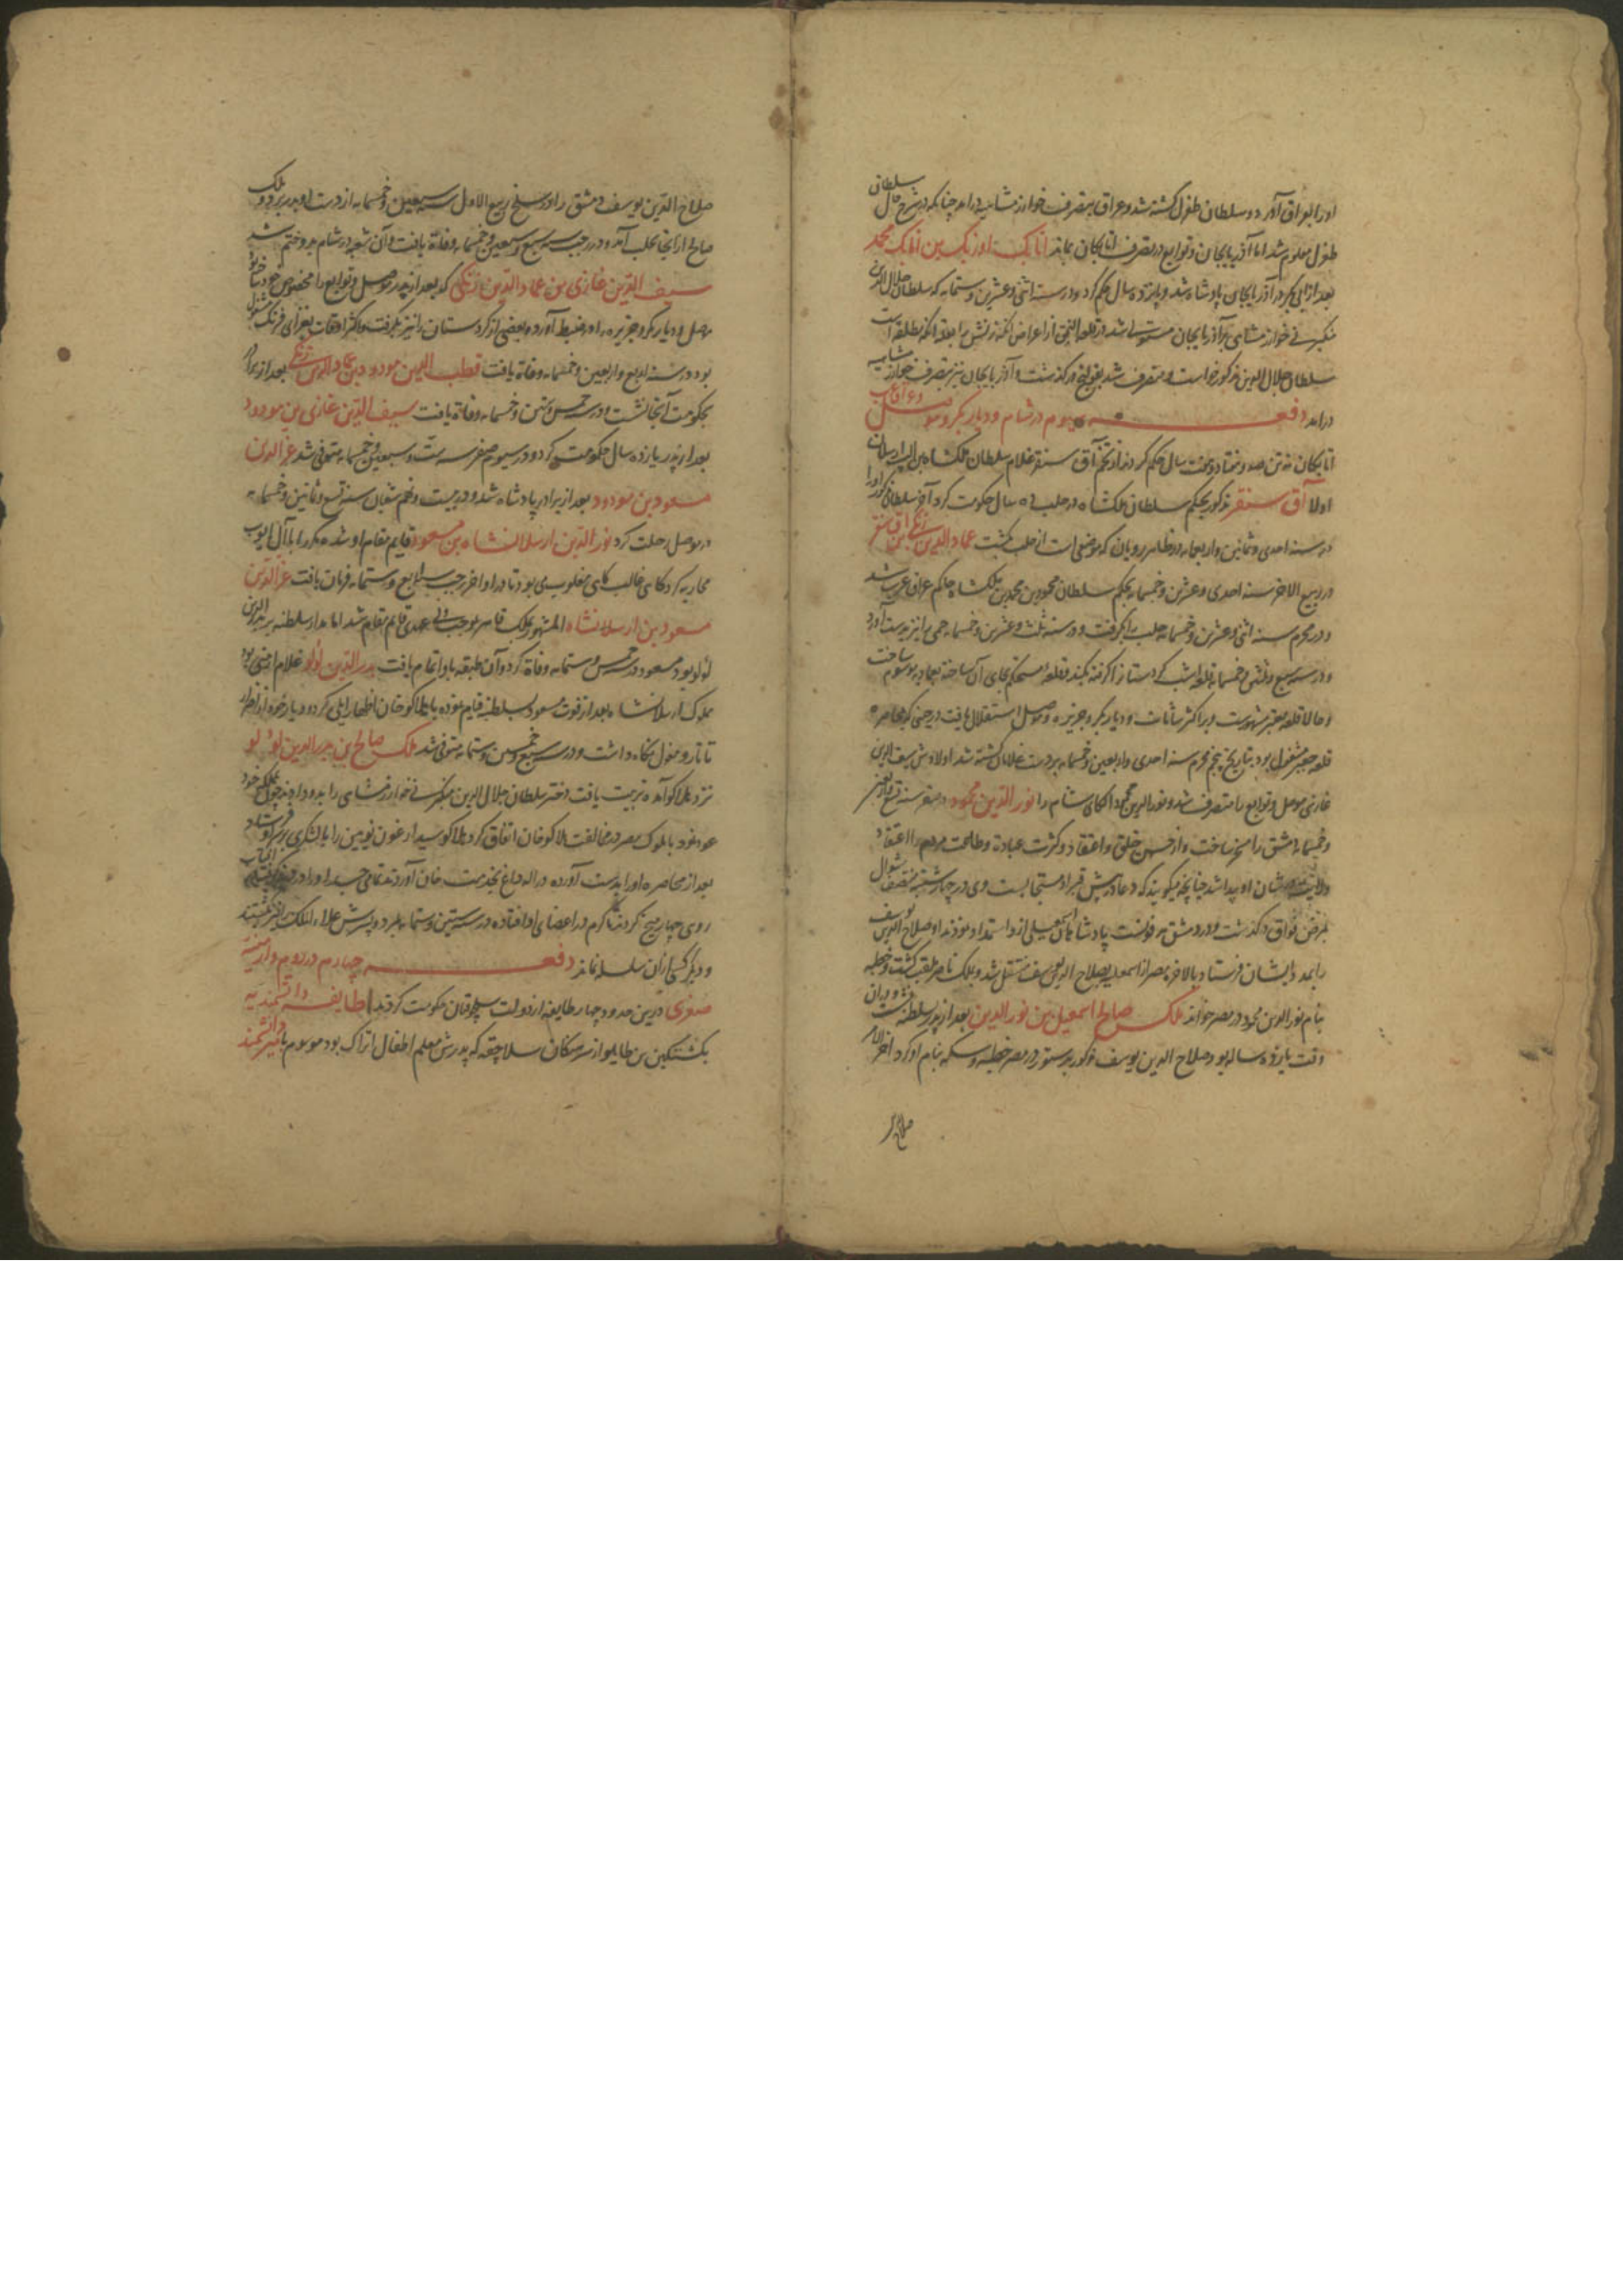 او را بعراق آورد و سلطان طغرل کشته شد و عراق بتصرف خوارزمشاهیه درامد چنانکه در شرح حال سلطان
طغرل معلوم شد اما آذربایجان و توابع در تصرف اتابکان بماند اتابک اوزبک بن اتابک محمد
بعد از ابی بکر در آذربایجان پادشاه شد و پانزده سال حکم کرد و در سنه اثنی و عشرین و ستمایه که سلطان جلال الدین
منکبرنی خوارزمشاهی بر آذربایجان مستولی شد در قلعه النجق از اعراض انکه زنش را بعلة انکه مطلقه است
سلطان جلال الدین مذکور خواست و متصرف شد بقولنج درکذشت و آذربایجان نیز بتصرف خوارزمشاهیه
درامد دفعه سیوم در شام و دیاربکر و موصل
اتابکان نه تن صد و هفتاد و هفت سال حکم کردند از تخم آق سنقر غلام سلطان ملکشاه بن الب ارسلان
اولا آق سنقر مذکور بحکم سلطان ملکشاه در حلب ده سال حکومت کرد آخر سلطان مذکور او را
در سنه احدی و ثمانین و اربعمایه در ظاهر رویان که موضعی است از حلب بکشت عماد الدین زنکی بن اق سنقر
در ربیع الاخر سنه احدی و عشرین و خمسمایه بحکم سلطان محمود بن محمد بن ملکشاه حاکم عراق عرب شد
و در محرم سنه اثنی و عشرین و خمسمایه حلب را بکرفت و در سنه ثلث و عشرین و خمسمایه حمی را نیز بدست آورد
و در سنه سبع و ثلثین و خمسمایه قلعه اشب کردستان را کرفته بکند و قلعه مستحکم بجای آن ساخته بعمادیه موسوم ساخت
و حالا قلعه معتبر مشهورست و بر اکثر شامات و دیاربکر و جزیره و موصل استقلال یافت در حینی که بمحاصره
قلعه جعبر مشغول بود بتاریخ پنجم محرم سنه احدی و اربعین و خمسمایه بر دست غلامان کشته شد اولادش سیف الدین
غازی موصل و توابع را متصرف شد و نور الدین محمود الکای شام را نور الدین محمود در صفر سنه تسع و اربعین
و خمسمایه دمشق را مسخر ساخت و از حسن خلق و اعتقاد و کثرت عبادة و طاعت مردم را اعتقاد
ولایت در شان او پیدا شد چنانچه میکویند که دعا در پیش قبر او مستجابست وی در چهارشنبه منتصف شوال
بمرض خناق درکذشت و در دمشق مدفونست پادشاهان اسمعیلی ازو استمداد نمودند او صلاح الدین یوسف
را بمدد ایشان فرستاد بالاخره مصر از اسمعیلیه بصلاح الدین یوسف منتقل شد و بملک ناصر ملقب کشت و خطبه
بنام نور الدین محمود در مصر خواند ملک صالح اسمعیل بن نور الدین بعد از پدر بر سلطنه نشست و در آن
وقت یازده ساله بود صلاح الدین یوسف مذکور بدستور در مصر خطبه و سکه بنام او کرد آخر الامر
صلاح
صلاح الدین یوسف دمشق را در سلخ ربیع الاول سنه سبعین و خمسمایه از دست او بدر برد و ملک
صالح از انجا بحلب آمد و در رجب سنه سبع و سبعین و خمسمایه وفاة یافت و آن شعبه در شام برو ختم شد
سیف الدین غازی بن عماد الدین زنکی که بعد از پدر موصل و توابع را مخصوص خود ساخته بود
موصل و دیاربکر و جزیره را در ضبط آورد و بعضی از کردستان را نیز بکرفت و اکثر اوقات بغزای فرنک مشغول
بود در سنه اربع و اربعین و خمسمایه وفاة یافت قطب الدین مودود بن عماد الدین زنکی بعد از برادر
بحکومت آنجا نشست و در سنه خمس و ستین و خمسمایه وفاة یافت سیف الدین غازی بن مودود
بعد از پدر یازده سال حکومت کرد و در سیوم صفر سنه ست و سبعین و خمسمایه متوفی شد عز الدین
مسعود بن مودود بعد از برادر پادشاه شد و در بیست و نهم شعبان سنه تسع و ثمانین و خمسمایه
در موصل رحلت کرد نور الدین ارسلانشاه بن مسعود قایم مقام او شد و مکرر با آل ایوب
محاربه کرد کاهی غالب کاهی مغلوب می بود تا در اواخر رجب سنه سابع و ستمایه فرمان یافت عز الدین
مسعود بن ارسلانشاه المشهور بملک قاهر بموجب ولی عهدی قایم مقام شد اما مدار سلطنه بر بدر الدین
لولو بود مسعود در سنه خمس و ستمایه وفاة کرد و آن طبقه باو اتمام یافت بدر الدین لولو غلام ارمنی بود
مملوک ارسلانشاه بعد از فوت مسعود بسلطنه قیام نموده با هلاکو خان اظهار ایلی کرد و دیار خود از اضرار
تاتار و مغول نکاه داشت و در سنه سبع و خمسین و ستمایه متوفی شد ملک صالح بن بدر الدین لولو
نزد هلاکو آمده تربیت یافت دختر سلطان جلال الدین منکبرنی خوارزمشاهی را بدو دادند چون بملک خود
عود نمود با ملوک مصر در مخالفت هلاکو خان اتفاق کرد هلاکو سیدا رغون نویین را با لشکری بر سر او فرستاد
بعد از محاصره او را بدست آورده در اله داغ بخدمت خان آوردند تمامی جسد او را در
روی چهار میخ کردند تا کرم در اعضای او افتاده در سنه ستین و ستمایه بمرد و پسرش علاء الملک را نیز بکشتند
و دیکر کسی ازان سلسله نماند دفعه چهارم در روم و ارمنیه
صغری درین حدود چهار طایفه از دولت سلجوقیان حکومت کردند طایفه دانشمندیه
بکشتکین بن طایلو از سرهنکان سلاجقه که پدرش معلم اطفال اتراک بود موسوم بامیر دانشمند